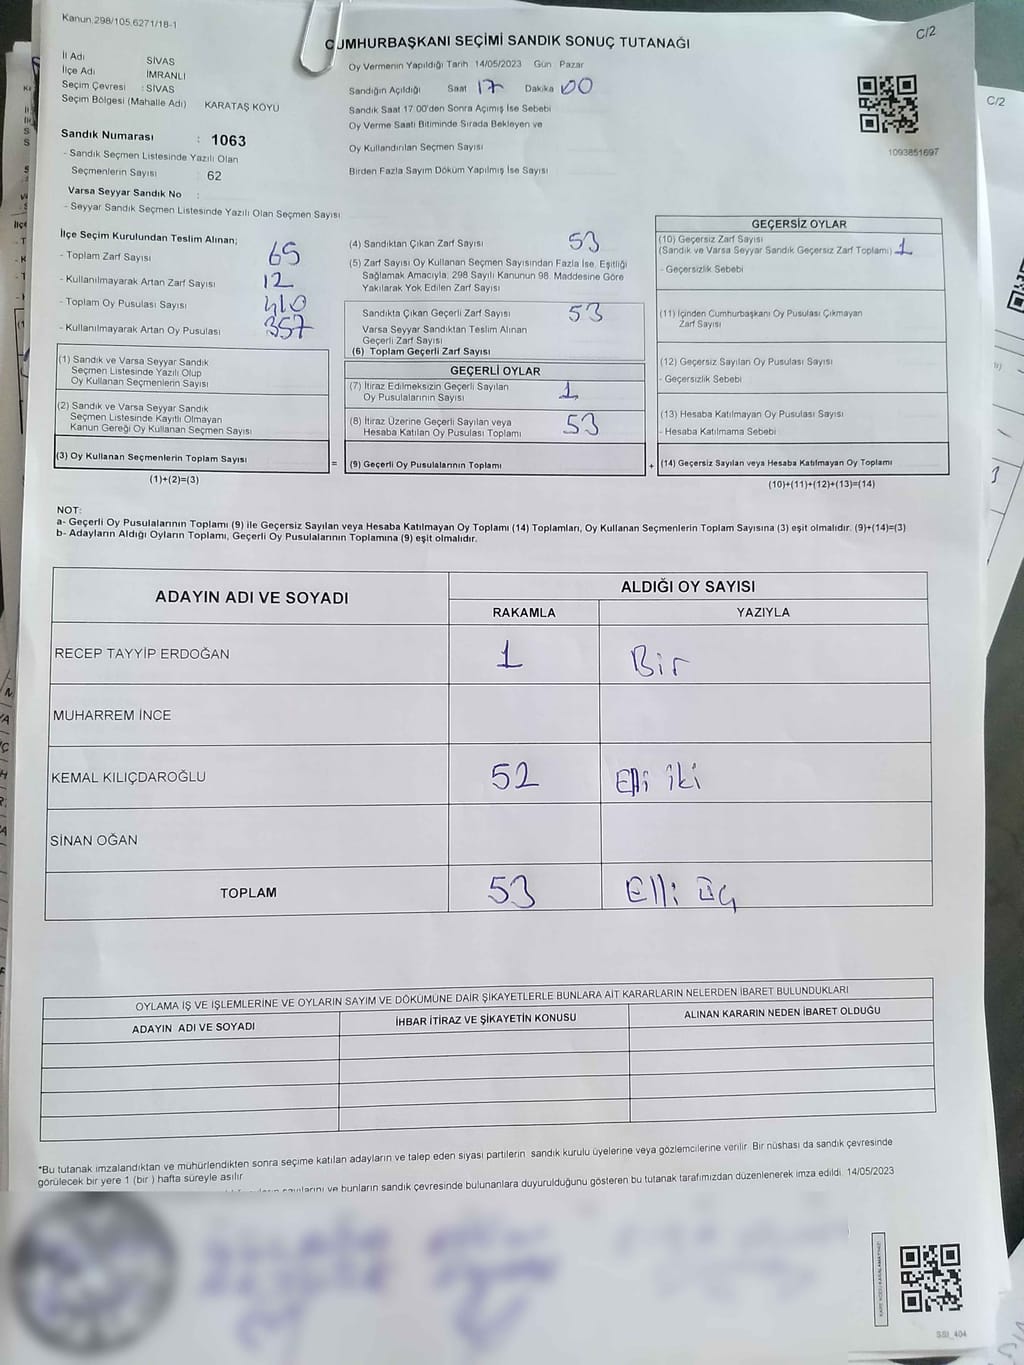 Kanun.298/105,6271/18-1
C/2
CUMHURBAŞKANI SEÇİMİ SANDIK SONUÇ TUTANAĞI
İl Adı SİVAS
İlçe Adı İMRANLI
Seçim Çevresi : SİVAS
Seçim Bölgesi (Mahalle Adı) KARATAŞ KÖYÜ
Sandık Numarası : 1063
- Sandık Seçmen Listesinde Yazılı Olan
Seçmenlerin Sayısı : 62
Varsa Seyyar Sandık No :
- Seyyar Sandık Seçmen Listesinde Yazılı Olan Seçmen Sayısı
Oy Vermenin Yapıldığı Tarih 14/05/2023 Gün : Pazar
Sandığın Açıldığı Saat 17 Dakika 00
Sandık Saat 17:00'den Sonra Açımış İse Sebebi
Oy Verme Saati Bitiminde Sırada Bekleyen ve
Oy Kullandırılan Seçmen Sayısı
Birden Fazla Sayım Döküm Yapılmış İse Sayısı
1093851697
C/2
İlçe Seçim Kurulundan Teslim Alınan;
- Toplam Zarf Sayısı 65
- Kullanılmayarak Artan Zarf Sayısı 12
- Toplam Oy Pusulası Sayısı 410
- Kullanılmayarak Artan Oy Pusulası 357
(1) Sandık ve Varsa Seyyar Sandık
Seçmen Listesinde Yazılı Olup
Oy Kullanan Seçmenlerin Sayısı
(2) Sandık ve Varsa Seyyar Sandık
Seçmen Listesinde Kayıtlı Olmayan
Kanun Gereği Oy Kullanan Seçmen Sayısı
(3) Oy Kullanan Seçmenlerin Toplam Sayısı
(1)+(2)=(3)
=
(4) Sandıktan Çıkan Zarf Sayısı 53
(5) Zarf Sayısı Oy Kullanan Seçmen Sayısından Fazla İse, Eşitliği
Sağlamak Amacıyla; 298 Sayılı Kanunun 98. Maddesine Göre
Yakılarak Yok Edilen Zarf Sayısı
Sandıkta Çıkan Geçerli Zarf Sayısı 53
Varsa Seyyar Sandıktan Teslim Alınan
Geçerli Zarf Sayısı
(6) Toplam Geçerli Zarf Sayısı
GEÇERLİ OYLAR
(7) İtiraz Edilmeksizin Geçerli Sayılan
Oy Pusulalarının Sayısı 1
(8) İtiraz Üzerine Geçerli Sayılan veya
Hesaba Katılan Oy Pusulası Toplamı 53
(9) Geçerli Oy Pusulalarının Toplamı
+
GEÇERSİZ OYLAR
(10) Geçersiz Zarf Sayısı
(Sandık ve Varsa Seyyar Sandık Geçersiz Zarf Toplamı) 1
- Geçersizlik Sebebi
(11) İçinden Cumhurbaşkanı Oy Pusulası Çıkmayan
Zarf Sayısı
(12) Geçersiz Sayılan Oy Pusulası Sayısı
- Geçersizlik Sebebi
(13) Hesaba Katılmayan Oy Pusulası Sayısı
- Hesaba Katılmama Sebebi
(14) Geçersiz Sayılan veya Hesaba Katılmayan Oy Toplamı
(10)+(11)+(12)+(13)=(14)
NOT:
a- Geçerli Oy Pusulalarının Toplamı (9) ile Geçersiz Sayılan veya Hesaba Katılmayan Oy Toplamı (14) Toplamları, Oy Kullanan Seçmenlerin Toplam Sayısına (3) eşit olmalıdır. (9)+(14)=(3)
b- Adayların Aldığı Oyların Toplamı, Geçerli Oy Pusulalarının Toplamına (9) eşit olmalıdır.
ADAYIN ADI VE SOYADI
ALDIĞI OY SAYISI
RAKAMLA YAZIYLA
RECEP TAYYİP ERDOĞAN 1 Bir
MUHARREM İNCE
KEMAL KILIÇDAROĞLU 52 Elli iki
SİNAN OĞAN
TOPLAM 53 Elli üç
OYLAMA İŞ VE İŞLEMLERİNE VE OYLARIN SAYIM VE DÖKÜMÜNE DAİR ŞİKAYETLERLE BUNLARA AİT KARARLARIN NELERDEN İBARET BULUNDUKLARI
ADAYIN ADI VE SOYADI İHBAR İTİRAZ VE ŞİKAYETİN KONUSU ALINAN KARARIN NEDEN İBARET OLDUĞU
*Bu tutanak imzalandıktan ve mühürlendikten sonra seçime katılan adayların ve talep eden siyasi partilerin sandık kurulu üyelerine veya gözlemcilerine verilir. Bir nüshası da sandık çevresinde
görülecek bir yere 1 (bir ) hafta süreyle asılır.
ve bunların sandık çevresinde bulunanlara duyurulduğunu gösteren bu tutanak tarafımızdan düzenlenerek imza edildi. 14/05/2023
SSI_404